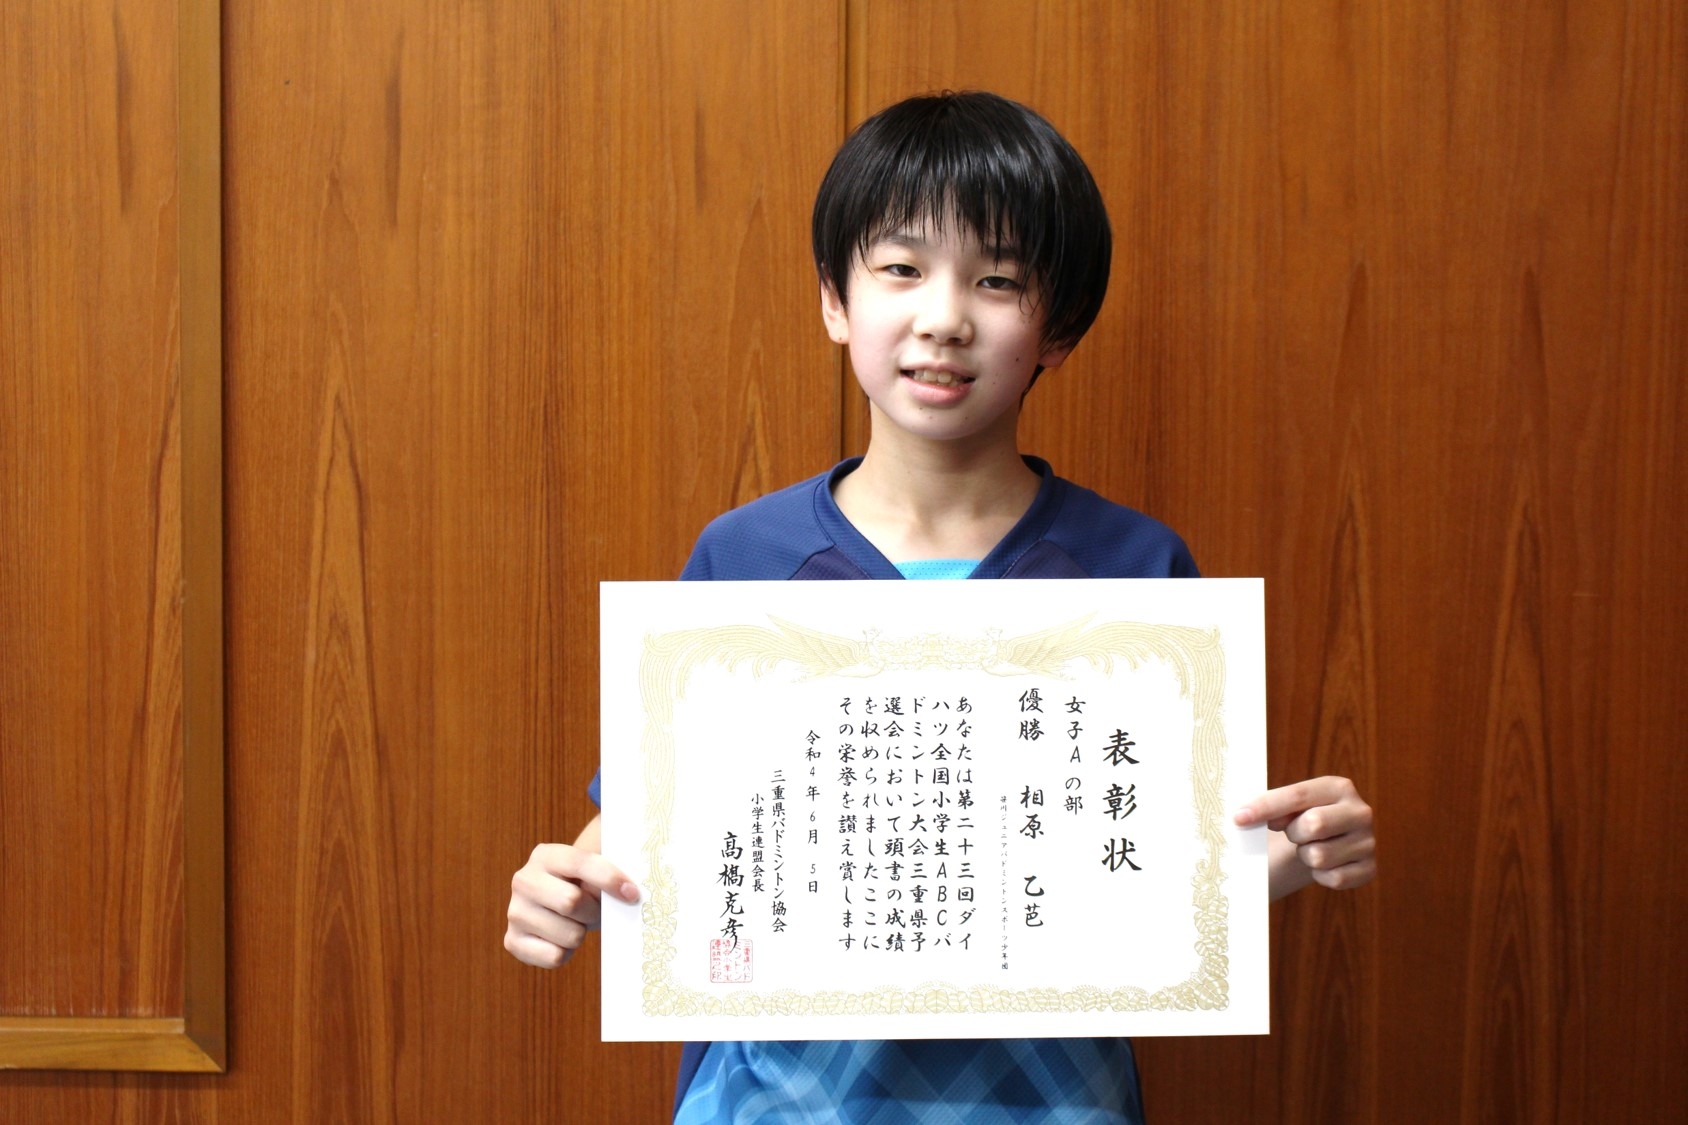 表彰状
女子Aの部
優勝 相原 乙芭
笹川ジュニアバドミントンスポーツ少年団
あなたは第二十三回ダイ
ハツ全国小学生ABCバ
ドミントン大会三重県予
選会において頭書の成績
を収められましたここに
その栄誉を讃え賞します
令和4年6月5日
三重県バドミントン協会
小学生連盟会長
髙橋克彦